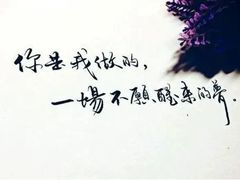 你是我做的,
一場不願醒来的夢。